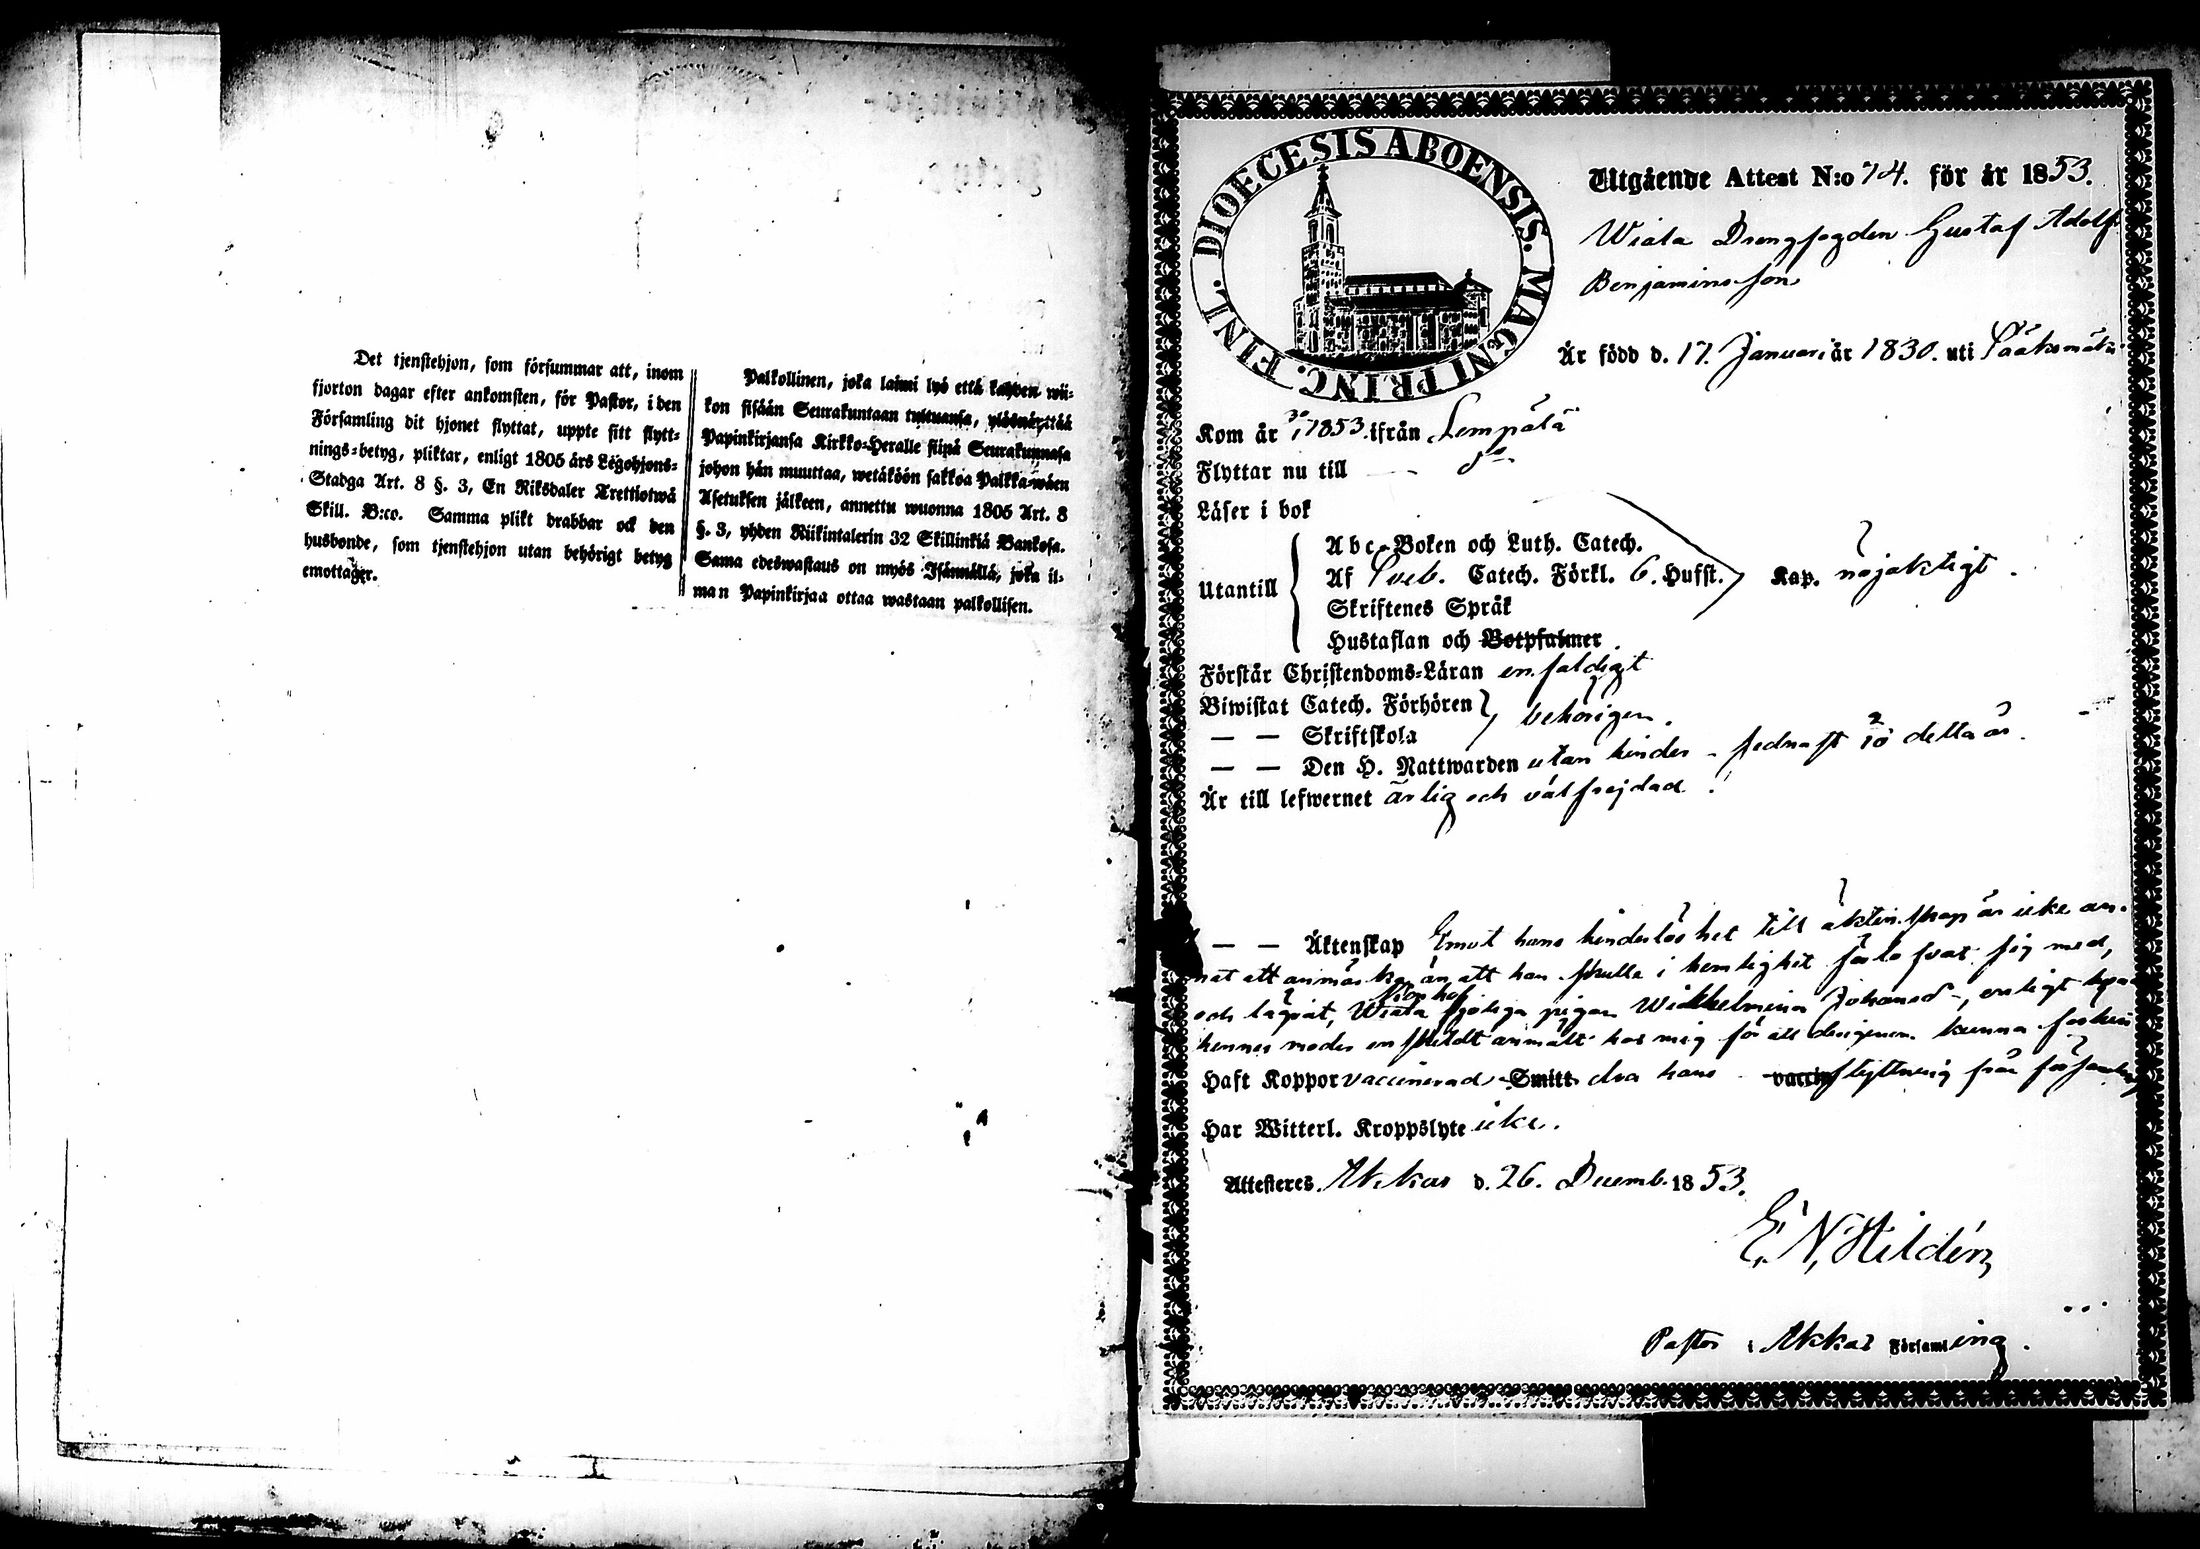 Det tjenstehjon, som försummar att, inom
fjorton dagar efter ankomsten, för Pastor, i den
Församling dit hjonet flyttat, uppte sitt flytt-
nings-betyg, pliktar, enligt 1805 års Legohjons-
Stadga Art. 8 §. 3, En Riksdaler Trettiotwå
Skill. B:co. Samma plikt drabbar ock den
husbonde, som tjenstehjon utan behörigt betyg
emottager.
Palkollinen, joka laimi lyö että kahden wii-
kon sisään Seurakuntaan tultuansa, ylösnäyttää
Papinkirjansa Kirkko-Herralle siinä Seurakunnasa
johon hän muuttaa, wetäköön sakkoa Palkka-wäen
Asetuksen jälkeen, annettu wuonna 1805 Art. 8
§. 3, yhden Riikintalerin 32 Skillinkiä Bankosa.
Sama edeswastaus on myös Isännällä, joka il-
man Papinkirjaa ottaa wastaan palkollisen.
DIOECESIS ABOENSIS. MAGNI PRINC. FINL.
Utgående Attest N:o 74. för år 1853.
Wiala Drengfogden Gustaf Adolf
Benjaminsson
Är född d. 17. Januari år 1830. uti Sääksmäki
Kom år 1853. ifrån Lempälä
Flyttar nu till — do
Läser i bok
Utantill
Abc-Boken och Luth. Catech.
Af Sveb. Catech. Förkl. 6. Hufst. Kap. nöjaktigt.
Skriftenes Språk
Hustaflan och Botpsalmer
Förstår Christendoms-Läran enfaldigt
Biwistat Catech. Förhören
— — Skriftskola behörigen.
— — Den H. Nattwarden utan hinder - sednast detta år.
Är till lefwernet ärlig och välfrejdad.
— — Äktenskap Emot hans hinderlöshet till äktenskap är icke an-
nat att anmärka, än att han skulle i hemlighet förlofvat sig med,
och lägrat, Wiala pigan Wilhelmina Johansd-, enligt
hennes moder enskildt anmält hos mig för att derigenom kunna förhin
Haft Koppor vaccinerad Smitt dra hans flyttning från församling
Har Witterl. Kroppslyte icke.
Attesteres Akkas d. 26. Decemb. 1853.
E. N. Hildén
Pastor i Akkas Församling.